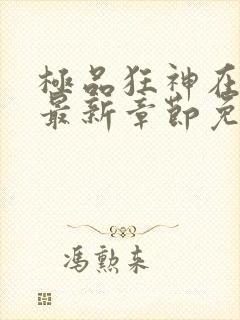 極品狂神在
最新章節免
馮勲来